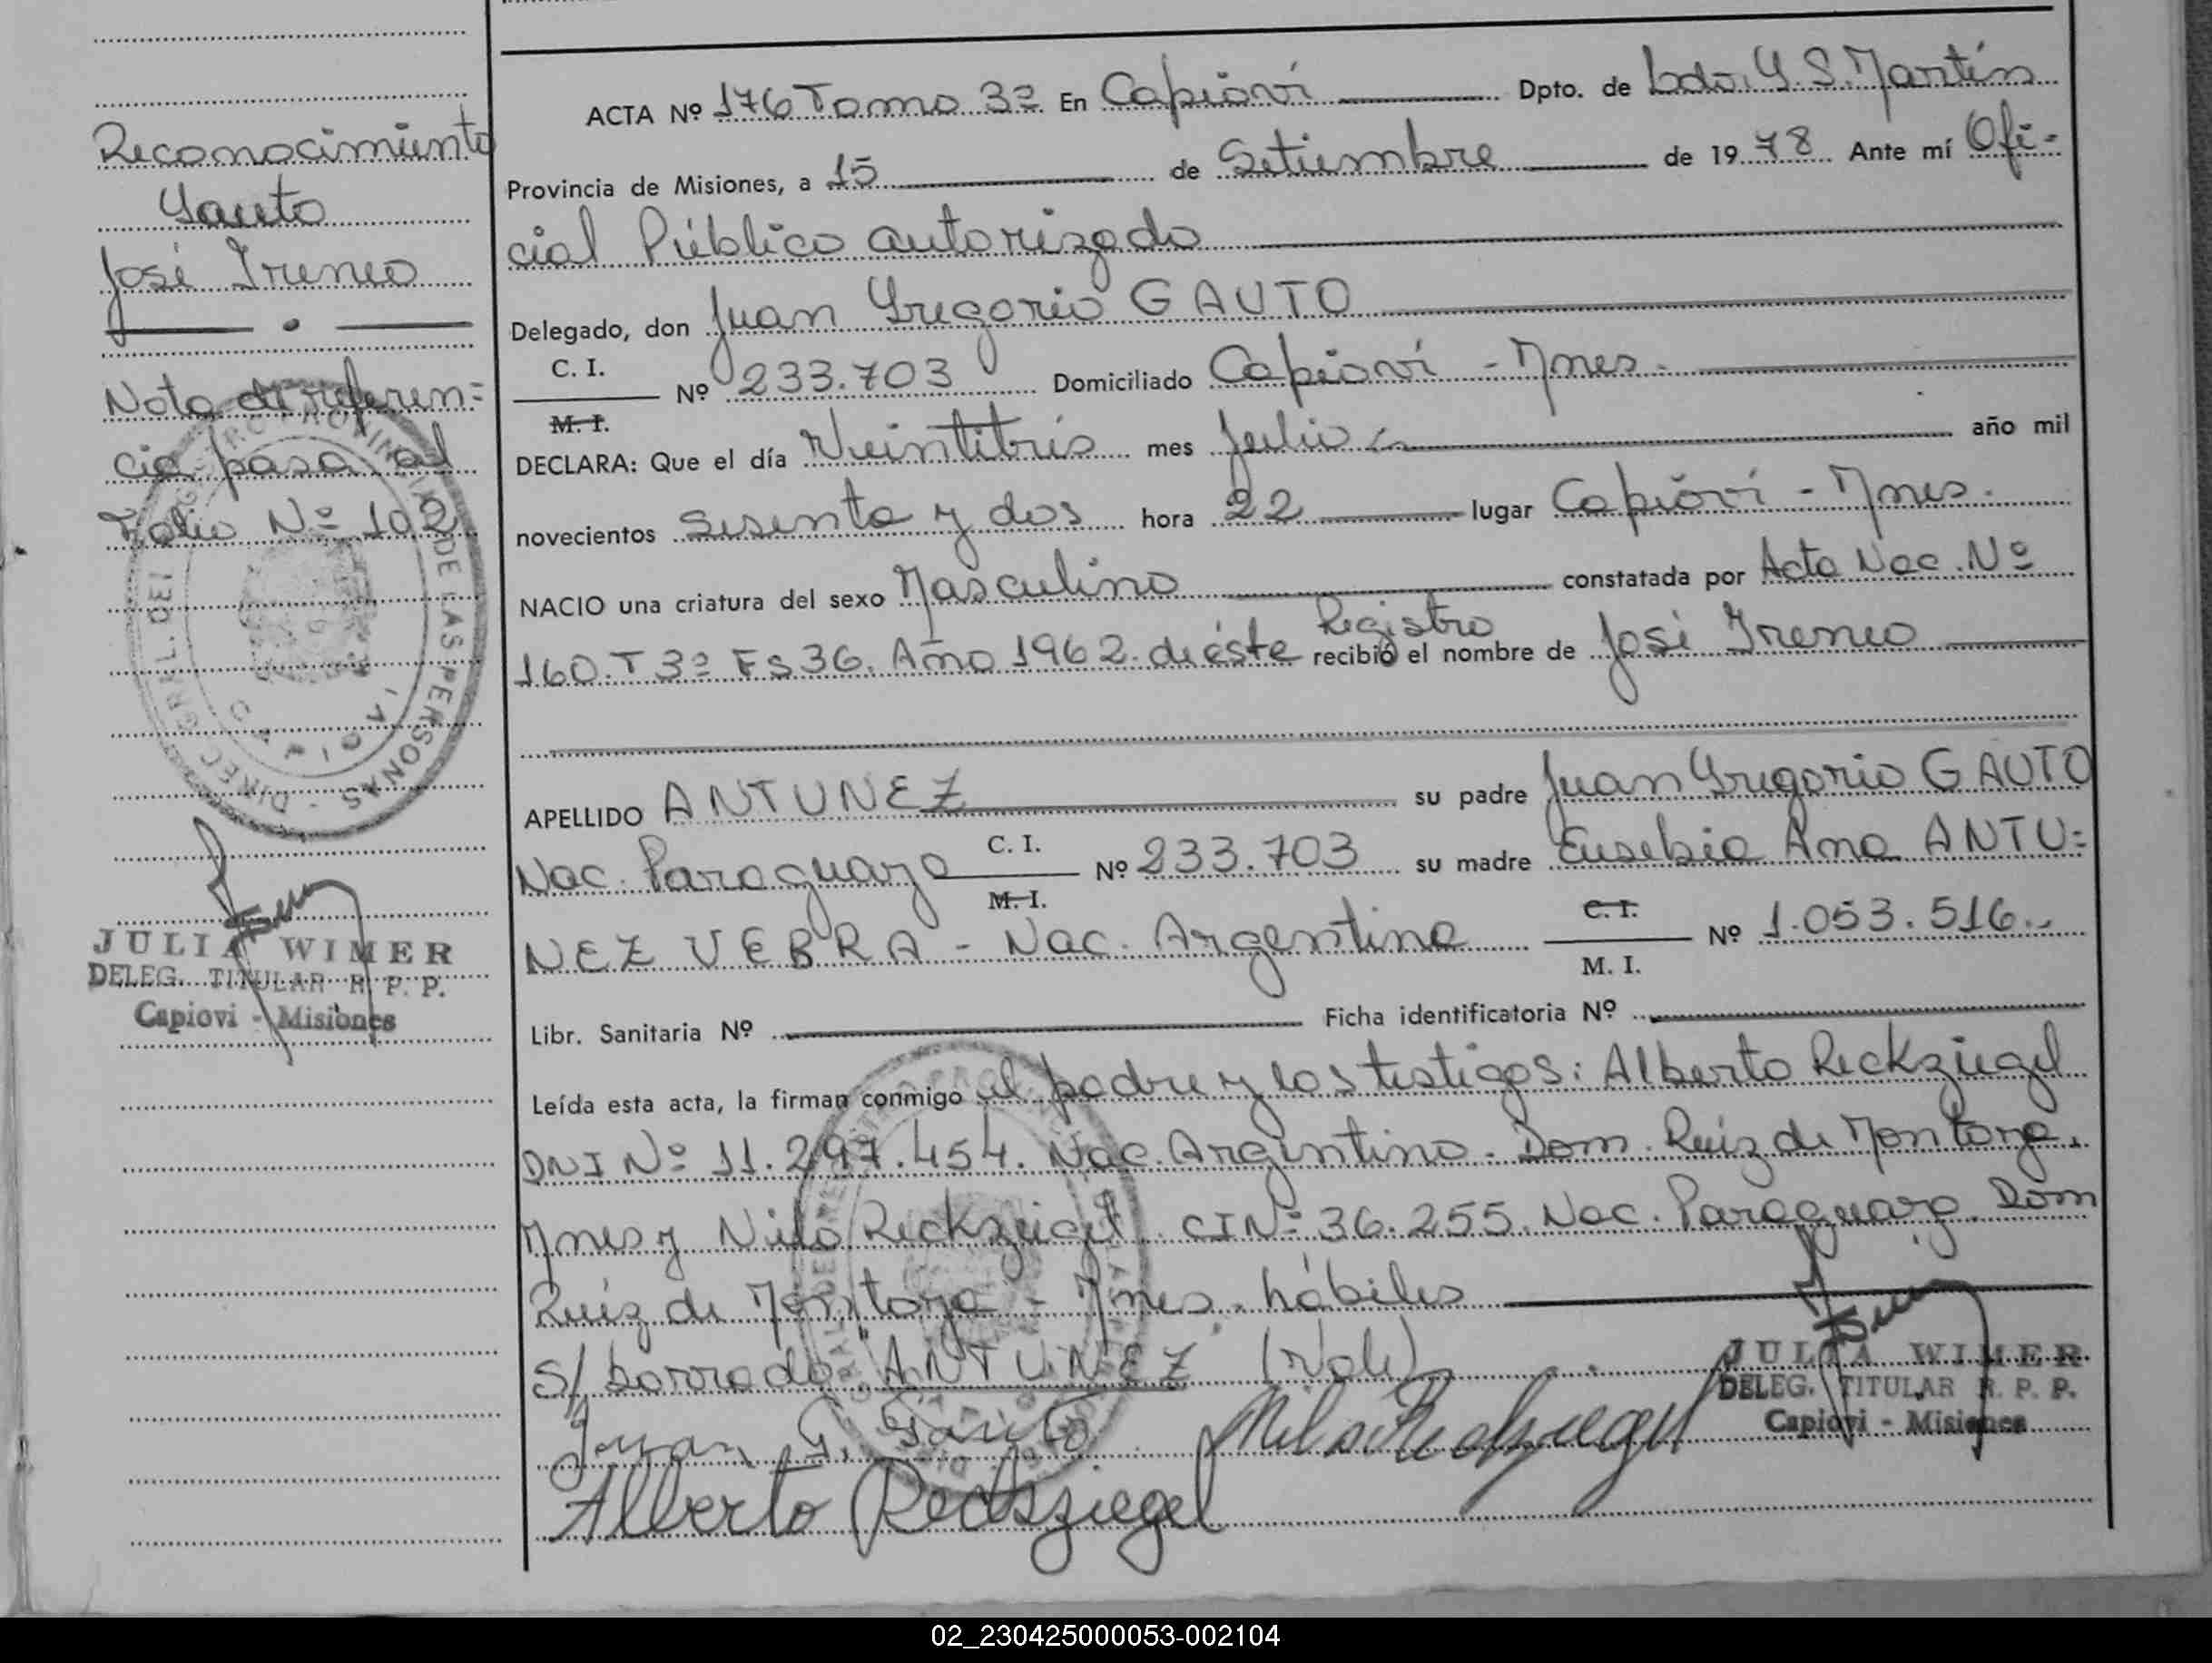 Reconocimiento
Gauto
José Ireneo
Nota de referen=
cia pasa al
Folio Nº 102
JULIA WIMER
DELEG. TITULAR R. P. P.
Capiovi - Misiones
ACTA Nº 176 Tomo 3º En Capioví Dpto. de Ldor. G. S. Martín
Provincia de Misiones, a 15 de Setiembre de 1978 Ante mí Ofi=
cial Público autorizado
Delegado, don Juan Gregorio GAUTO
C. I.
M. I. Nº 233.703 Domiciliado Capioví - Mnes.
DECLARA: Que el día Veintitrés mes Julio año mil
novecientos Sesenta y dos hora 22 lugar Capioví - Mnes.
NACIO una criatura del sexo Masculino constatada por Acta Nac. Nº
Registro
160. T 3º Fs 36. Año 1962. de éste recibió el nombre de José Ireneo
APELLIDO ANTUNEZ su padre Juan Gregorio GAUTO
Nac. Paraguayo C. I. M. I. Nº 233.703 su madre Eusebia Ana ANTU=
NEZ VEBRA - Nac. Argentina C. I. M. I. Nº 1.053.516.
Libr. Sanitaria Nº Ficha identificatoria Nº
Leída esta acta, la firman conmigo el padre y los testigos: Alberto Reckziegel
DNI Nº 11.297.454. Nac. Argentino. Dom. Ruiz de Montoya.
Mnes y Nilo Reckziegel. CI Nº 36.255. Nac. Paraguayo. Dom
Ruiz de Montoya - Mnes. hábiles
S/ borrado "ANTUNEZ (Vale)
Juan G. Gauto
Nilo Reckziegel
JULIA WIMER
DELEG. TITULAR R. P. P.
Capiovi - Misiones
Alberto Reckziegel
02_230425000053-002104